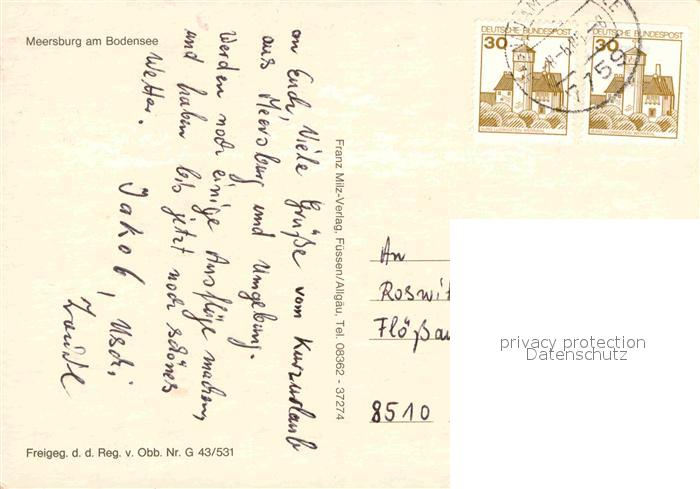 Meersburg am Bodensee
an Euch, Viele Grüße vom Kurzurlaub
aus Meersburg und Umgebung.
Werden noch einige Ausflüge machen,
und haben bis jetzt noch schönes
Wetter.
Jakob, Uschi
Franz Milz-Verlag, Füssen/Allgäu, Tel. 08362 - 37274
Freigeg. d. d. Reg. v. Obb. Nr. G 43/531
30 DEUTSCHE BUNDESPOST
30 DEUTSCHE BUNDESPOST
7759
An
Roswit
Flößau
8510
privacy protection
Datenschutz